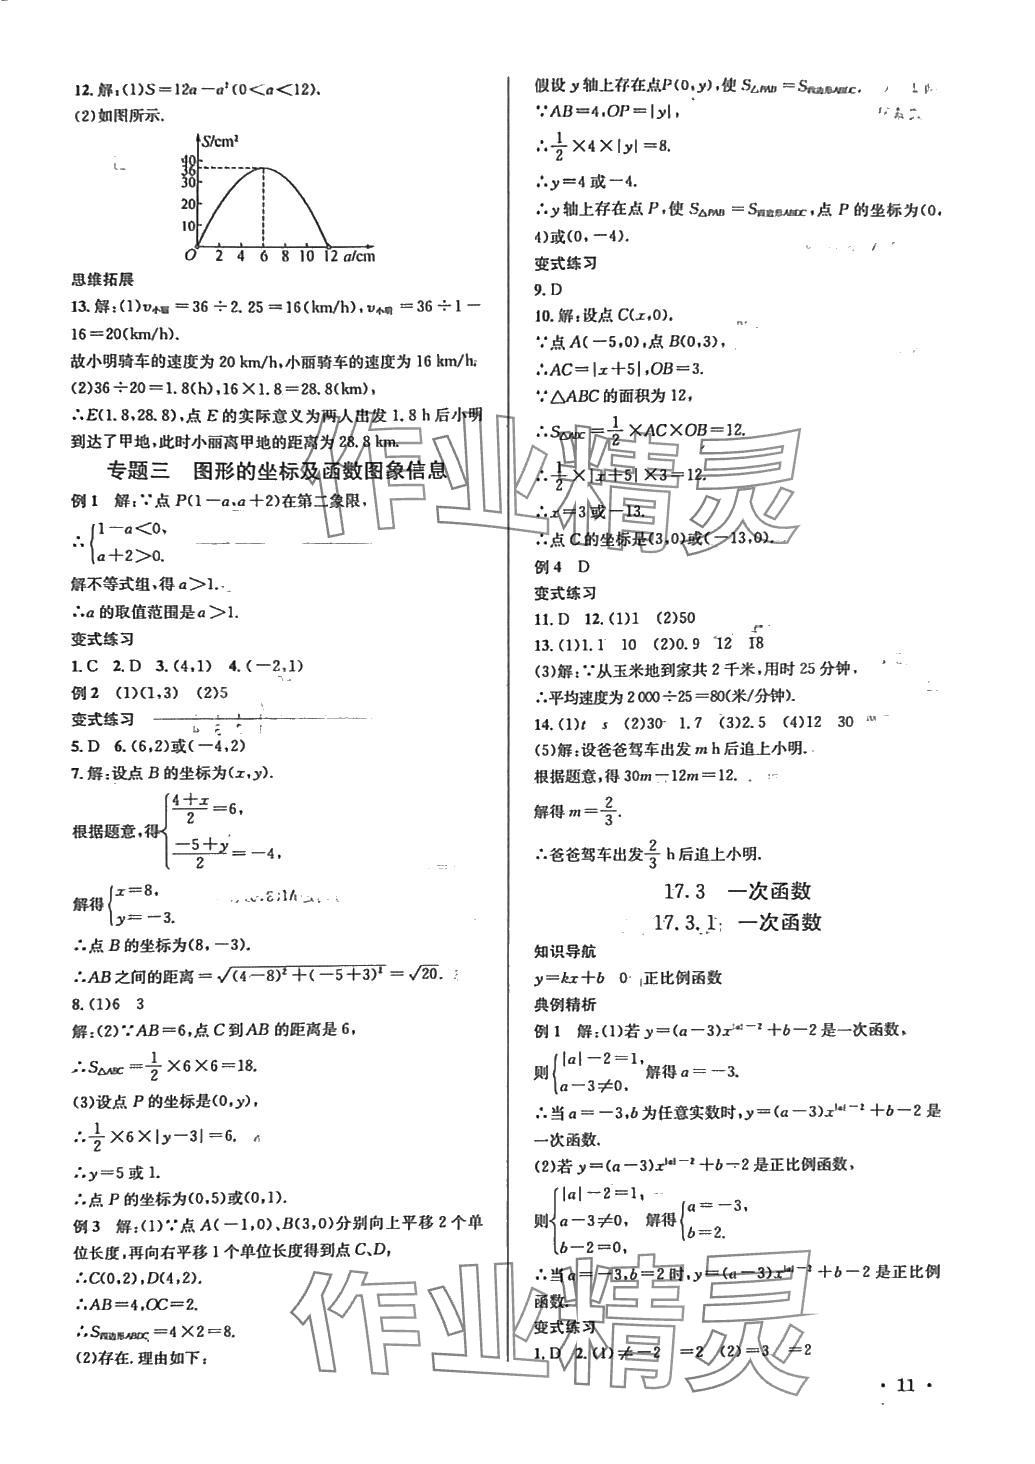 12. 解:(1)S=12a-a²(0<a<12).
(2)如图所示.
S/cm²
40
36
30
20
10
O 2 4 6 8 10 12 a/cm
思维拓展
13. 解:(1)v小丽=36÷2.25=16(km/h),v小明=36÷1-
16=20(km/h).
故小明骑车的速度为 20 km/h,小丽骑车的速度为 16 km/h.
(2)36÷20=1.8(h),16×1.8=28.8(km),
∴E(1.8,28.8),点 E 的实际意义为两人出发 1.8 h 后小明
到达了甲地,此时小丽离甲地的距离为 28.8 km.
专题三 图形的坐标及函数图象信息
例 1 解:∵点 P(1-a,a+2)在第二象限,
∴{1-a<0,
a+2>0.
解不等式组,得 a>1.
∴a 的取值范围是 a>1.
变式练习
1. C 2. D 3. (4,1) 4. (-2,1)
例 2 (1)(1,3) (2)5
变式练习
5. D 6. (6,2)或(-4,2)
7. 解:设点 B 的坐标为(x,y).
根据题意,得{(4+x)/2=6,
(-5+y)/2=-4,
解得{x=8,
y=-3.
∴点 B 的坐标为(8,-3).
∴AB 之间的距离=√((4-8)²+(-5+3)²)=√20.
8. (1)6 3
解:(2)∵AB=6,点 C 到 AB 的距离是 6,
∴S△ABC=1/2×6×6=18.
(3)设点 P 的坐标是(0,y),
∴1/2×6×|y-3|=6.
∴y=5 或 1.
∴点 P 的坐标为(0,5)或(0,1).
例 3 解:(1)∵点 A(-1,0)、B(3,0)分别向上平移 2 个单
位长度,再向右平移 1 个单位长度得到点 C、D,
∴C(0,2),D(4,2).
∴AB=4,OC=2.
∴S四边形ABDC=4×2=8.
(2)存在.理由如下:
假设 y 轴上存在点P(0,y),使 S△PAB=S四边形ABDC.
∵AB=4,OP=|y|,
∴1/2×4×|y|=8.
∴y=4 或-4.
∴y 轴上存在点 P,使 S△PAB=S四边形ABDC,点 P 的坐标为(0,
4)或(0,-4).
变式练习
9. D
10. 解:设点 C(x,0).
∵点 A(-5,0),点 B(0,3),
∴AC=|x+5|,OB=3.
∵△ABC 的面积为 12,
∴S△ABC=1/2×AC×OB=12.
∴1/2×|x+5|×3=12.
∴x=3 或-13.
∴点 C 的坐标是(3,0)或(-13,0).
例 4 D
变式练习
11. D 12. (1)1 (2)50
13. (1)1.1 10 (2)0.9 12 18
(3)解:∵从玉米地到家共 2 千米,用时 25 分钟,
∴平均速度为 2 000÷25=80(米/分钟).
14. (1)t s (2)30 1.7 (3)2.5 (4)12 30
(5)解:设爸爸驾车出发 m h 后追上小明.
根据题意,得 30m-12m=12.
解得 m=2/3.
∴爸爸驾车出发 2/3 h 后追上小明.
17.3 一次函数
17.3.1 一次函数
知识导航
y=kx+b 0 正比例函数
典例精析
例 1 解:(1)若 y=(a-3)x^{|a|-2}+b-2 是一次函数,
则{|a|-2=1,
a-3≠0, 解得 a=-3.
∴当 a=-3,b 为任意实数时,y=(a-3)x^{|a|-2}+b-2 是
一次函数.
(2)若 y=(a-3)x^{|a|-2}+b-2 是正比例函数,
则{|a|-2=1,
a-3≠0, 解得{a=-3,
b-2=0, b=2.
∴当 a=-3,b=2 时,y=(a-3)x^{|a|-2}+b-2 是正比例
函数.
变式练习
1. D 2. (1)≠-2 =2 (2)=3 =2
· 11 ·
作业精灵
作业精灵